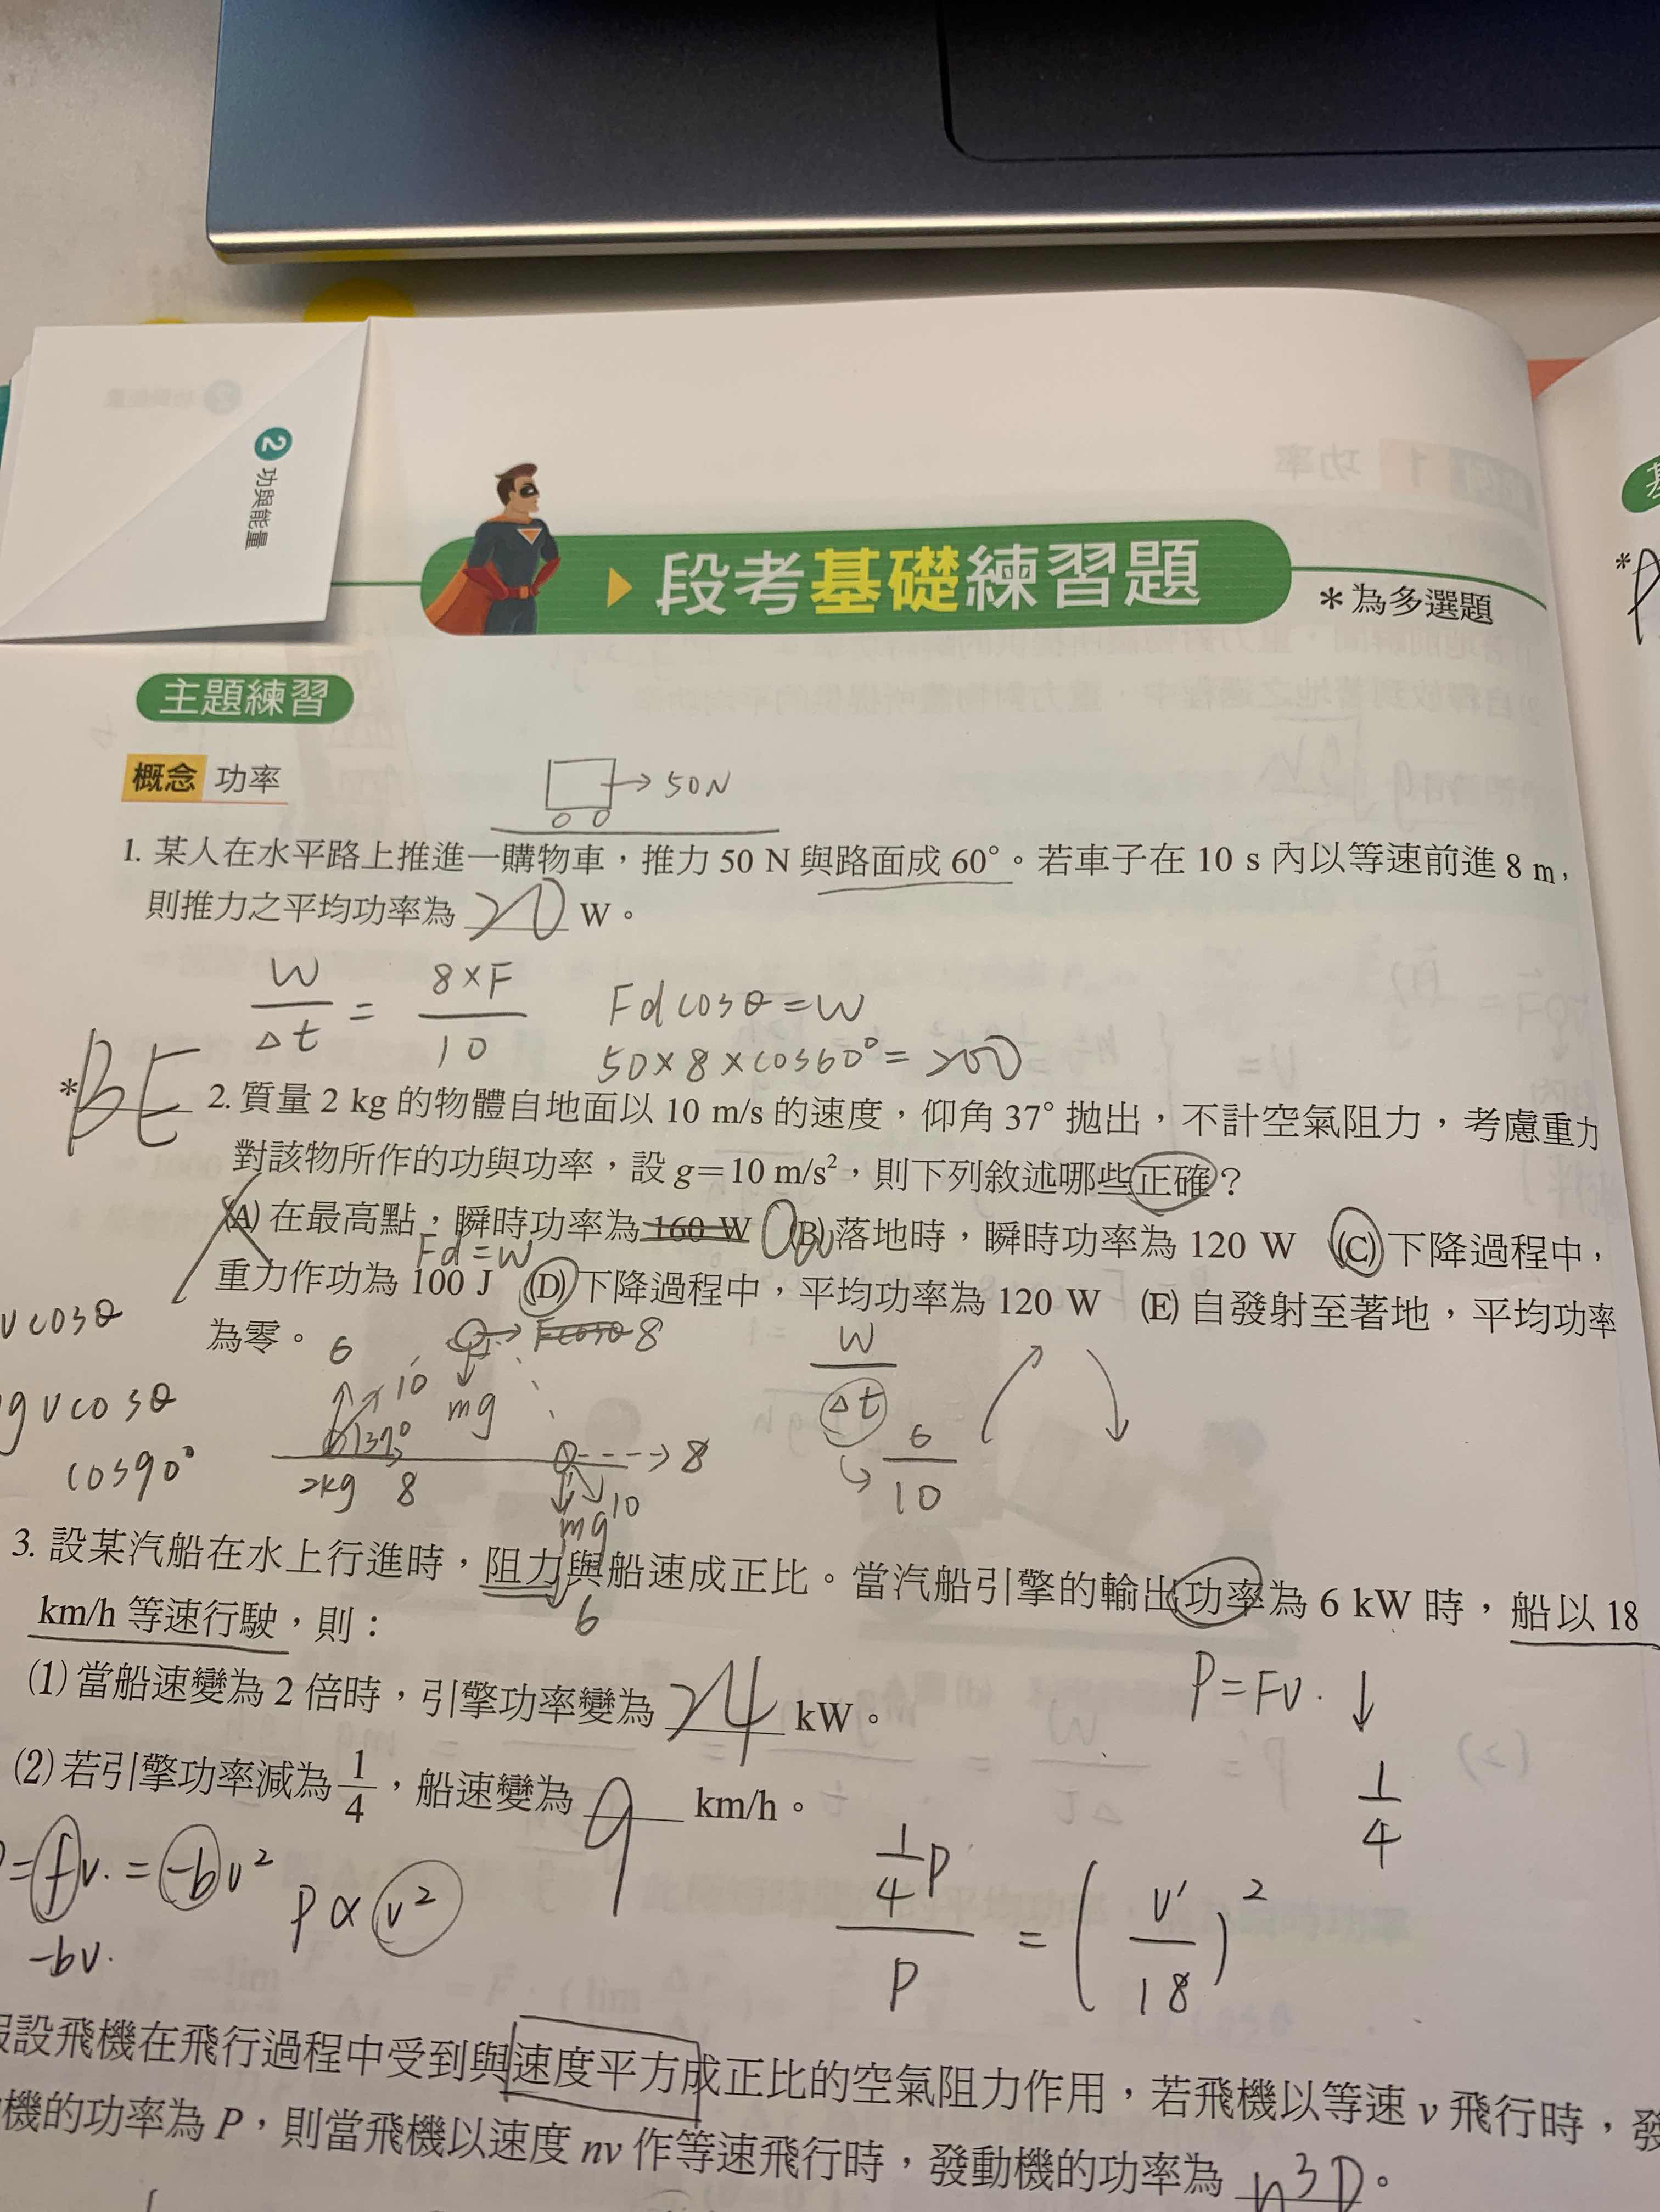 2 功與能量
段考基礎練習題
＊為多選題
主題練習
概念 功率
→ 50N
1. 某人在水平路上推進一購物車，推力 50 N 與路面成 60°。若車子在 10 s 內以等速前進 8 m，
則推力之平均功率為 20 W。
W/Δt = 8×F/10
Fd cosθ = W
50×8×cos60° = 200
*BE 2. 質量 2 kg 的物體自地面以 10 m/s 的速度，仰角 37° 拋出，不計空氣阻力，考慮重力
對該物所作的功與功率，設 g＝10 m/s²，則下列敘述哪些正確？
(A) 在最高點，瞬時功率為 160 W (B) 落地時，瞬時功率為 120 W (C) 下降過程中，
Fd = W
重力作功為 100 J (D) 下降過程中，平均功率為 120 W (E) 自發射至著地，平均功率
為零。
vcosθ
gvcosθ
cos90°
6
10
37°
2kg 8
Fcosθ 8
mg
8
10
mg
6
W/Δt
6/10
3. 設某汽船在水上行進時，阻力與船速成正比。當汽船引擎的輸出功率為 6 kW 時，船以 18
km/h 等速行駛，則：
(1) 當船速變為 2 倍時，引擎功率變為 24 kW。
(2) 若引擎功率減為 1/4，船速變為 9 km/h。
P = Fv. ↓
1/4
= fv. = -bv²
-bv.
P ∝ v²
1/4 P / P = (v'/18)²
設飛機在飛行過程中受到與速度平方成正比的空氣阻力作用，若飛機以等速 v 飛行時，發
機的功率為 P，則當飛機以速度 nv 作等速飛行時，發動機的功率為 n³P。
1 功率